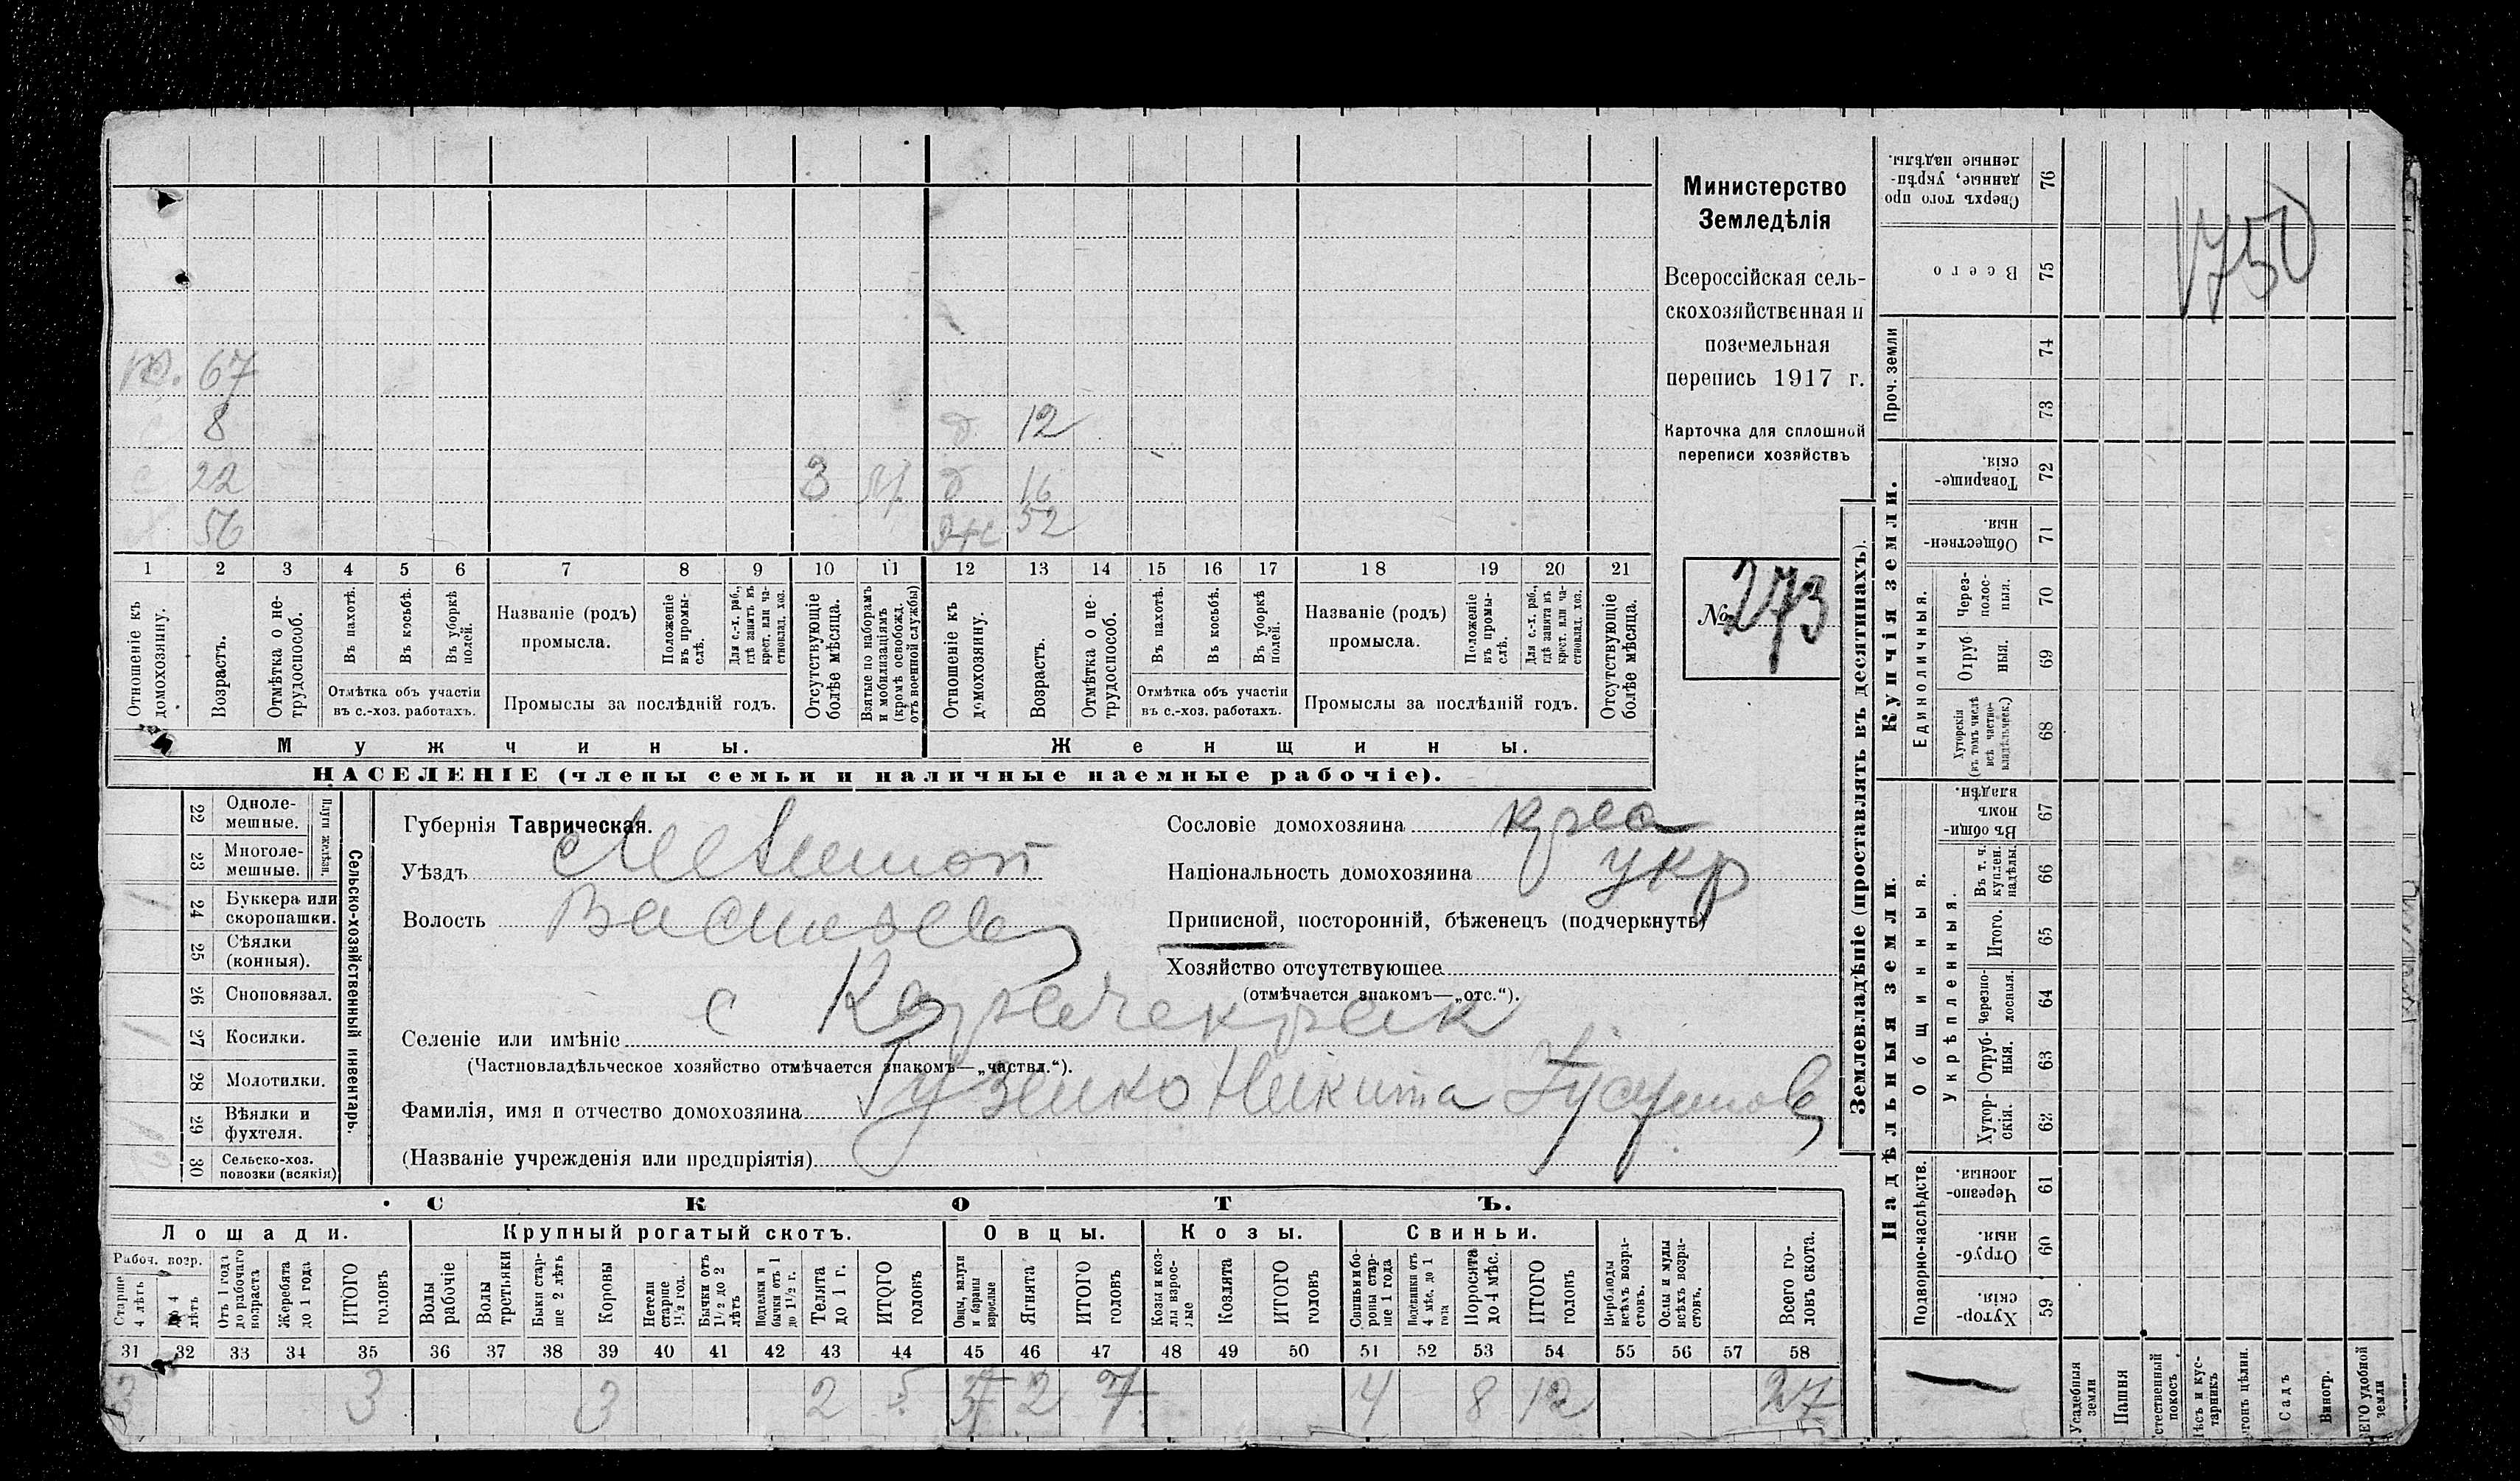 67
8 12
22 3 д 16
56 52
1 2 3 4 5 6 7 8 9 10 11 12 13 14 15 16 17 18 19 20 21
Отношеніе къ домохозяину.
Возрастъ.
Отмѣтка о не-
трудоспособ.
Въ пахотѣ.
Въ косьбѣ.
Въ уборкѣ
полей.
Отмѣтка объ участіи
въ с.-хоз. работахъ.
Названіе (родъ)
промысла.
Положеніе
въ промы-
слѣ.
Для с.-х. раб.,
гдѣ занятъ въ
крест. или ча-
стновлад. хоз.
Промыслы за послѣдній годъ.
Отсутствующіе
болѣе мѣсяца.
Взятые по наборамъ
и мобилизаціямъ
(кромѣ освобожд.
отъ военной службы)
Отношеніе къ
домохозяину.
Возрастъ.
Отмѣтка о не-
трудоспособ.
Въ пахотѣ.
Въ косьбѣ.
Въ уборкѣ
полей.
Отмѣтка объ участіи
въ с.-хоз. работахъ.
Названіе (родъ)
промысла.
Положеніе
въ промы-
слѣ.
Для с.-х. раб.,
гдѣ занята въ
крест. или ча-
стновлад. хоз.
Промыслы за послѣдній годъ.
Отсутствующіе
болѣе мѣсяца.
Мужчины.
Женщины.
НАСЕЛЕНІЕ (члены семьи и наличные наемные рабочіе).
Министерство
Земледѣлія
Всероссійская сель-
скохозяйственная и
поземельная
перепись 1917 г.
Карточка для сплошной
переписи хозяйствъ
№ 273
22 Одноле-
мешные.
23 Многоле-
мешные.
Плуги желѣзн.
24 Буккера или
скоропашки.
25 Сѣялки
(конныя).
26 Сноповязал.
27 Косилки.
28 Молотилки.
29 Вѣялки и
фухтеля.
30 Сельско-хоз.
повозки (всякія)
Сельско-хозяйственный инвентарь.
1
1
Губернія Таврическая.
Уѣздъ Мелитоп
Волость Васильев
Селеніе или имѣніе с Карачекрак
(Частновладѣльческое хозяйство отмѣчается знакомъ—„частвл.“).
Фамилія, имя и отчество домохозяина Гузенко Никита
(Названіе учрежденія или предпріятія)
Сословіе домохозяина
Національность домохозяина укр
Приписной, посторонній, бѣженецъ (подчеркнуть)
Хозяйство отсутствующее
(отмѣчается знакомъ—„отс.“).
СКОТЪ.
Лошади. Крупный рогатый скотъ. Овцы. Козы. Свиньи.
Рабоч. возр.
Старше
4 лѣтъ
До 4
лѣтъ
Отъ 1 года
до рабочаго
возраста
Жеребята
до 1 года
ИТОГО
головъ
Волы
рабочіе
Волы
третьяки
Быки стар-
ше 2 лѣтъ
Коровы
Нетели
старше
1½ год.
Бычки отъ
1½ до 2
лѣтъ
Подтелки и
бычки отъ 1
до 1½ г.
Телята
до 1 г.
ИТОГО
головъ
Овцы, валухи
и бараны
взрослые
Ягнята
ИТОГО
головъ
Козы и коз-
лы взрос-
лые
Козлята
ИТОГО
головъ
Свиньи и бо-
ровы стар-
ше 1 года
Подсвинки отъ
4 мѣс. до 1
года
Поросята
до 4 мѣс.
ИТОГО
головъ
Верблюды
всѣхъ возра-
стовъ.
Ослы и мулы
всѣхъ возра-
стовъ.
Всего го-
ловъ скота.
31 32 33 34 35 36 37 38 39 40 41 42 43 44 45 46 47 48 49 50 51 52 53 54 55 56 57 58
3 3 3 2 5 2 7 4 8 12 27
Землевладѣніе (проставлять въ десятинахъ).
Купчія земли.
Надѣльныя земли.
Сверхъ того про
данные, укрѣп-
ленные надѣлы.
76
Всего
75
Проч. земли
74
73
Товарище-
скія.
72
Обществен-
ныя
71
Единоличныя.
Через-
полос-
ныя.
70
Отруб
ныя.
69
Хуторскія
(въ томъ числѣ
всѣ частно-
владѣльческ.)
68
Въ общи
номъ
владѣн.
67
Общинныя.
Укрѣпленныя.
Въ т. ч.
куплен.
надѣлы.
66
Итого.
65
Черезпо-
лосныя.
64
Отруб-
ныя.
63
Хутор-
скія.
62
Подворно-наслѣдств.
Черезпо-
лосныя
61
Отруб-
ныя.
60
Хутор-
скія.
59
Усадебныя
земли
Пашня
стественный
покосъ
ѣсъ и кус-
тарникъ
гонъ цѣлин.
Садъ
Виногр.
ЕГО удобной
земли
1750